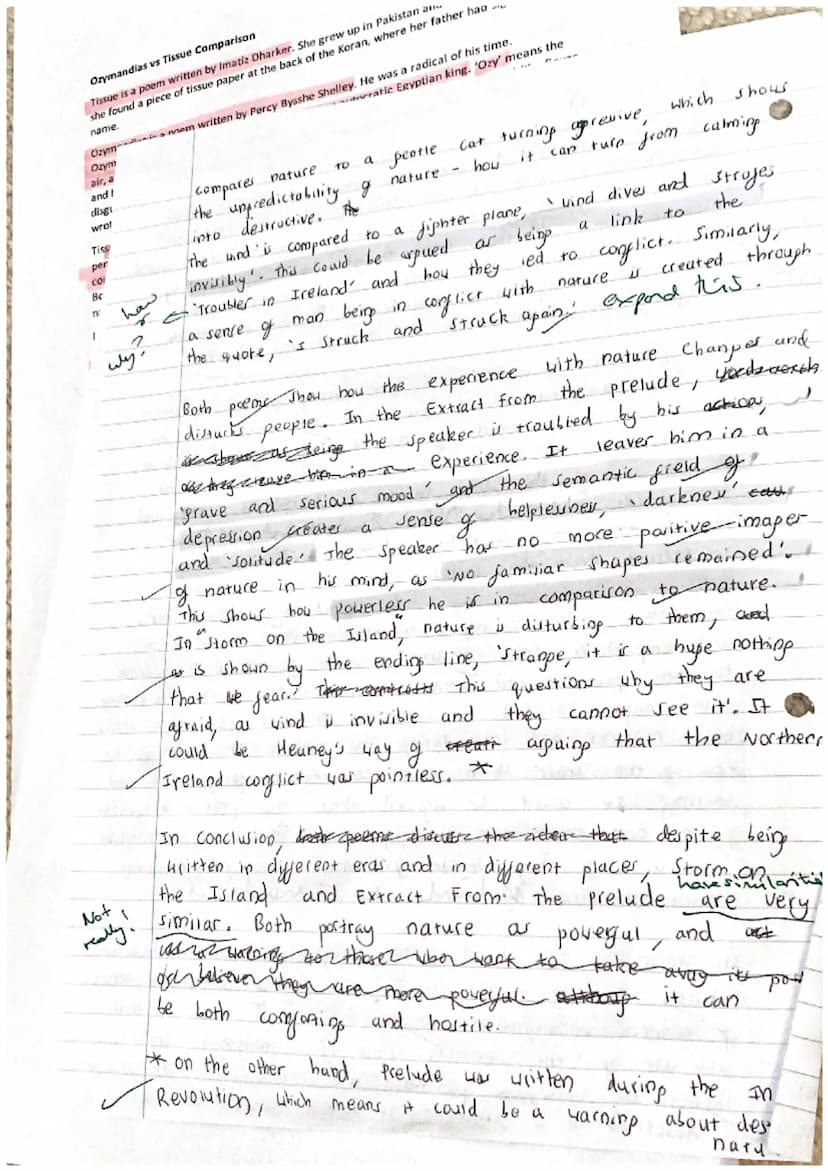 Ozymandias vs Tissue Comparison
Tissue is a poem written by Imatiz Dharker. She grew up in Pakistan
she found a piece of tissue paper at the back of the Koran, where her father had
name.
poem written by Percy Bysshe Shelley. He was a radical of his time.
Ozym Egyptian king. 'Ozy' means the
Ozym
air, a
and l
disgu
wrot
Tiss
per
co
compares nature to a peotle cat turning agressive, which shows
the unpredictability of nature - how it can turn from calming
into destructive. The
the wind is compared to a fighter plane, 'wind dives and strafes
invisibly'. This could be argued as being a link to the
'Troubles in Ireland' and how they led to conflict. Similarly,
how
?
why?
a sense of man being in conflict with nature is created through
the quote, 'I struck and struck again.' expand this.
Both poems show how the experience with nature changes and
disturbs people. In the Extract from the prelude, Wordsworth
is shown as being the speaker is troubled by his actions,
as they leave him in a experience. It leaves him in a
'grave and serious mood' and the semantic field of
depression creates a sense of helplessness, 'darkness'
and 'solitude.' The speaker has no more positive images
of nature in his mind, as 'No familiar shapes remained'.
This shows how powerless he is in comparison to nature.
In "Storm on the Island", nature is disturbing to them, and
as is shown by the ending line, 'Strange, it is a huge nothing
that we fear.' This contrasts This questions why they are
afraid, as wind is invisible and they cannot see it'. It
could be Heaney's way of creati arguing that the Northern
Ireland conflict was pointless. *
In conclusion, both poems discuss the idea that despite being
written in different eras and in different places, Storm on
the Island and Extract From the prelude are very
have similarities
Not
really!
similar. Both portray nature as powerful, and
as a warning for those who want to take away its pow
or believe they are more powerful. although it can
be both comforting and hostile.
* on the other hand, Prelude was written during the In
Revolution, which means it could be a warning about des
natu